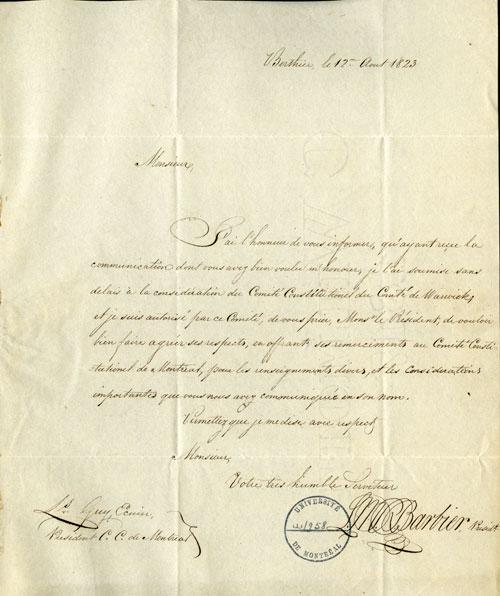 Berthier, le 12 Aout 1823
Monsieur,
J'ai l'honneur de vous informer, qu'ayant reçue la
communication dont vous avez bien voulu m'honorer, je l'ai soumise sans
delais à la consideration du Comité Constitutionel du Comté de Warwick,
et je suis autorisé par ce Comité, de vous prier, Monsr. le Président, de vouloir
bien faire agréer ses respects, en offrant ses remerciments au Comité Consti-
tutionel de Montreal, pour les renseignements divers, et les considerations
importantes que vous nous avez communiquée en son nom.
Permettez que je me dise avec respect,
Monsieur,
Votre très humble Serviteur
Barbier, Presidt.
Ls. Guy Ecuier,
President C. C. de Montreal
UNIVERSITÉ
1958
DE MONTRÉAL